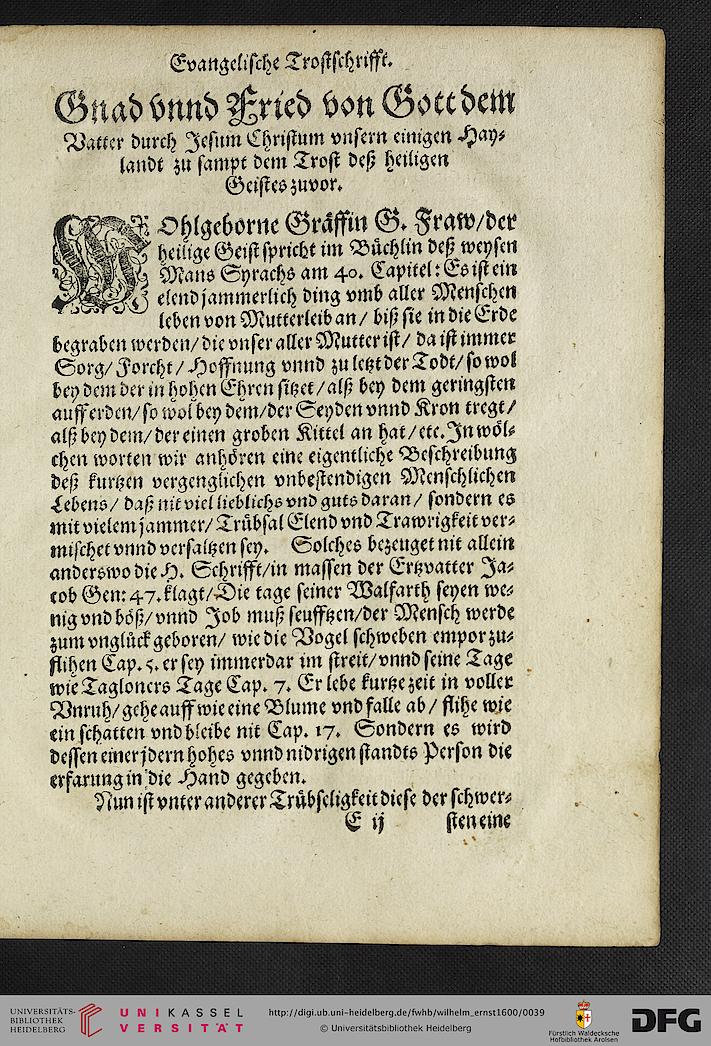 Evangelische Trostschrifft.
Gnad vnnd Fried von Gott dem
Vatter durch Jesum Christum vnsern einigen Hay⸗
landt zu sampt dem Trost deß heiligen
Geistes zuvor.
WOhlgeborne Gräffin G. Fraw/ der
heilige Geist spricht im Büchlin deß weysen
Mans Syrachs am 40. Capitel: Es ist ein
elend jammerlich ding vmb aller Menschen
leben von Mutterleib an / biß sie in die Erde
begraben werden/ die vnser aller Mutter ist/ da ist immer
Sorg/ Forcht / Hoffnung vnnd zu letzt der Todt/ so wol
bey dem der in hohen Ehren sitzet / alß bey dem geringsten
auff erden/ so wol bey dem/ der Seyden vnnd Kron tregt /
alß bey dem/ der einen groben Kittel an hat / etc. In wöl⸗
chen worten wir anhören eine eigentliche Beschreibung
deß kurtzen vergenglichen vnbestendigen Menschlichen
Lebens / daß nit viel lieblichs vnd guts daran / sondern es
mit vielem jammer/ Trübsal Elend vnd Trawrigkeit ver⸗
mischet vnnd versaltzen sey. Solches bezeuget nit allein
anderswo die H. Schrifft/ in massen der Ertzvatter Ja⸗
cob Gen: 47. klagt/ Die tage seiner Walfarth seyen we⸗
nig vnd böß/ vnnd Job muß seufftzen/ der Mensch werde
zum vnglück geboren/ wie die Vogel schweben empor zu⸗
flihen Cap. 5. er sey immerdar im streit/ vnnd seine Tage
wie Tagloners Tage Cap. 7. Er lebe kurtze zeit in voller
Vnruh/ gehe auff wie eine Blume vnd falle ab / flihe wie
ein schatten vnd bleibe nit Cap. 17. Sondern es wird
dessen einer jdern hohes vnnd nidrigen standts Person die
erfarung in die Hand gegeben.
Nun ist vnter anderer Trübseligkeit diese der schwer⸗
E ij sten eine
UNIVERSITÄTS-
BIBLIOTHEK
HEIDELBERG
UNIKASSEL
VERSITÄT
http://digi.ub.uni-heidelberg.de/fwhb/wilhelm_ernst1600/0039
© Universitätsbibliothek Heidelberg
Fürstlich Waldecksche
Hofbibliothek Arolsen
DFG